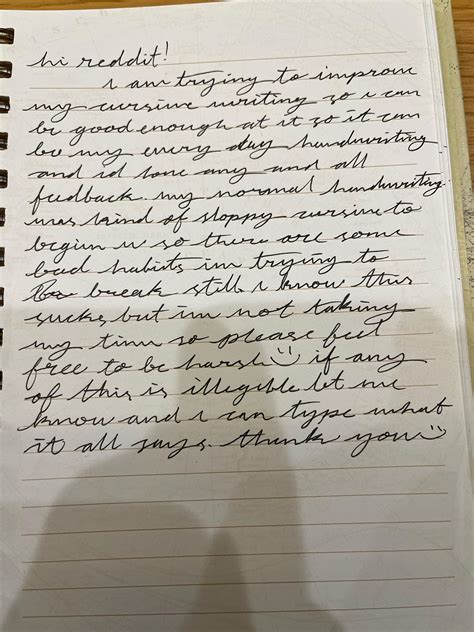 hi reddit!
i am trying to improve
my cursive writing so i can
be good enough at it so it can
be my every day handwriting
and id love any and all
feedback. my normal handwriting
was kind of sloppy cursive to
begin w so there are some
bad habits im trying to
break still. i know this
sucks but im not taking
my time so please feel
free to be harsh :) if any
of this is illegible let me
know and i can type what
it all says. thank you :)